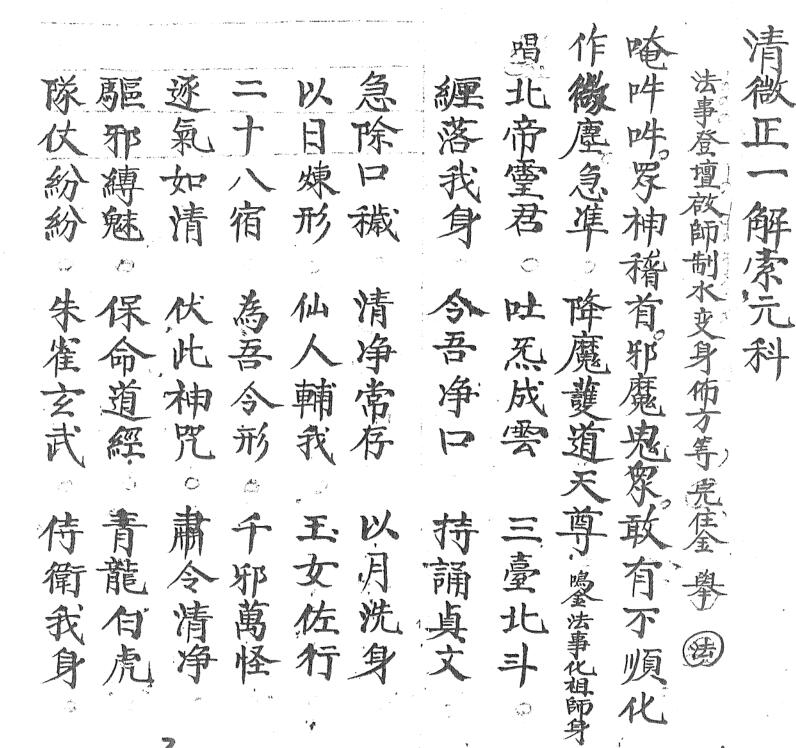 清微正一解索元科
法事登壇啟師制水变身佈方等完住金 舉 法
唵吽吽。眾神稽首。邪魔鬼眾。敢有不順化
作微塵急準 降魔護道天尊 鳴金法事化祖師身
唱 北帝靈君 吐炁成雲 三臺北斗
纏落我身 令吾净口 持誦真文
急除口穢 清净常存 以月洗身
以日煉形 仙人輔我 玉女佐行
二十八宿 為吾令形 千邪萬怪
逐氣如清 伏此神咒 肅令清净
驅邪縛魅 保命道經 青龍白虎
隊仗紛紛 朱雀玄武 侍衛我身